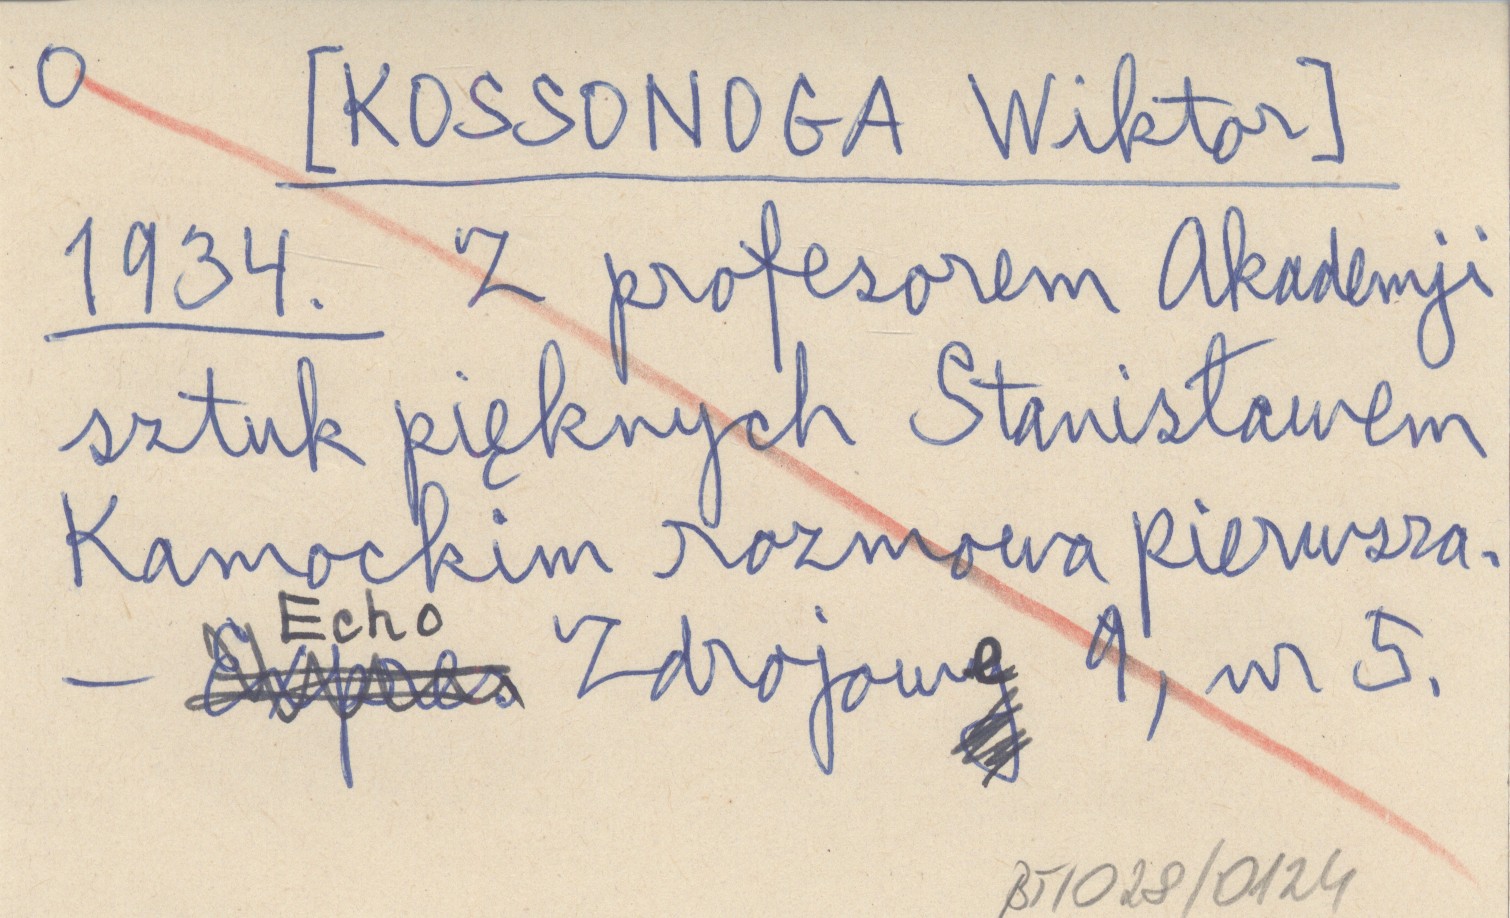 O [KOSSONOGA Wiktor]
1934. Z profesorem Akademji
sztuk pięknych Stanisławem
Kamockim rozmowa pierwsza.
Echo
— Zdrojowe 1, nr 5.
BT/028/0124